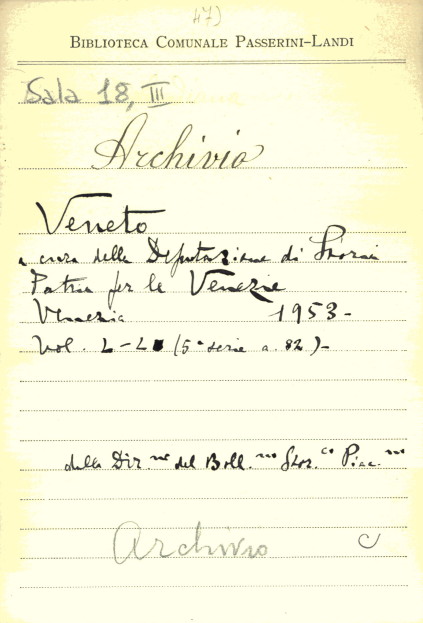 47)
BIBLIOTECA COMUNALE PASSERINI-LANDI
Sala 18, III
Archivio
Veneto
a cura della Deputazione di Storia
Patria per le Venezie
Venezia 1953-
Vol. L-L (5ª serie a. 82)-
dalla Dir.ne del Boll.no Stor.co Piac.no
Archivio C